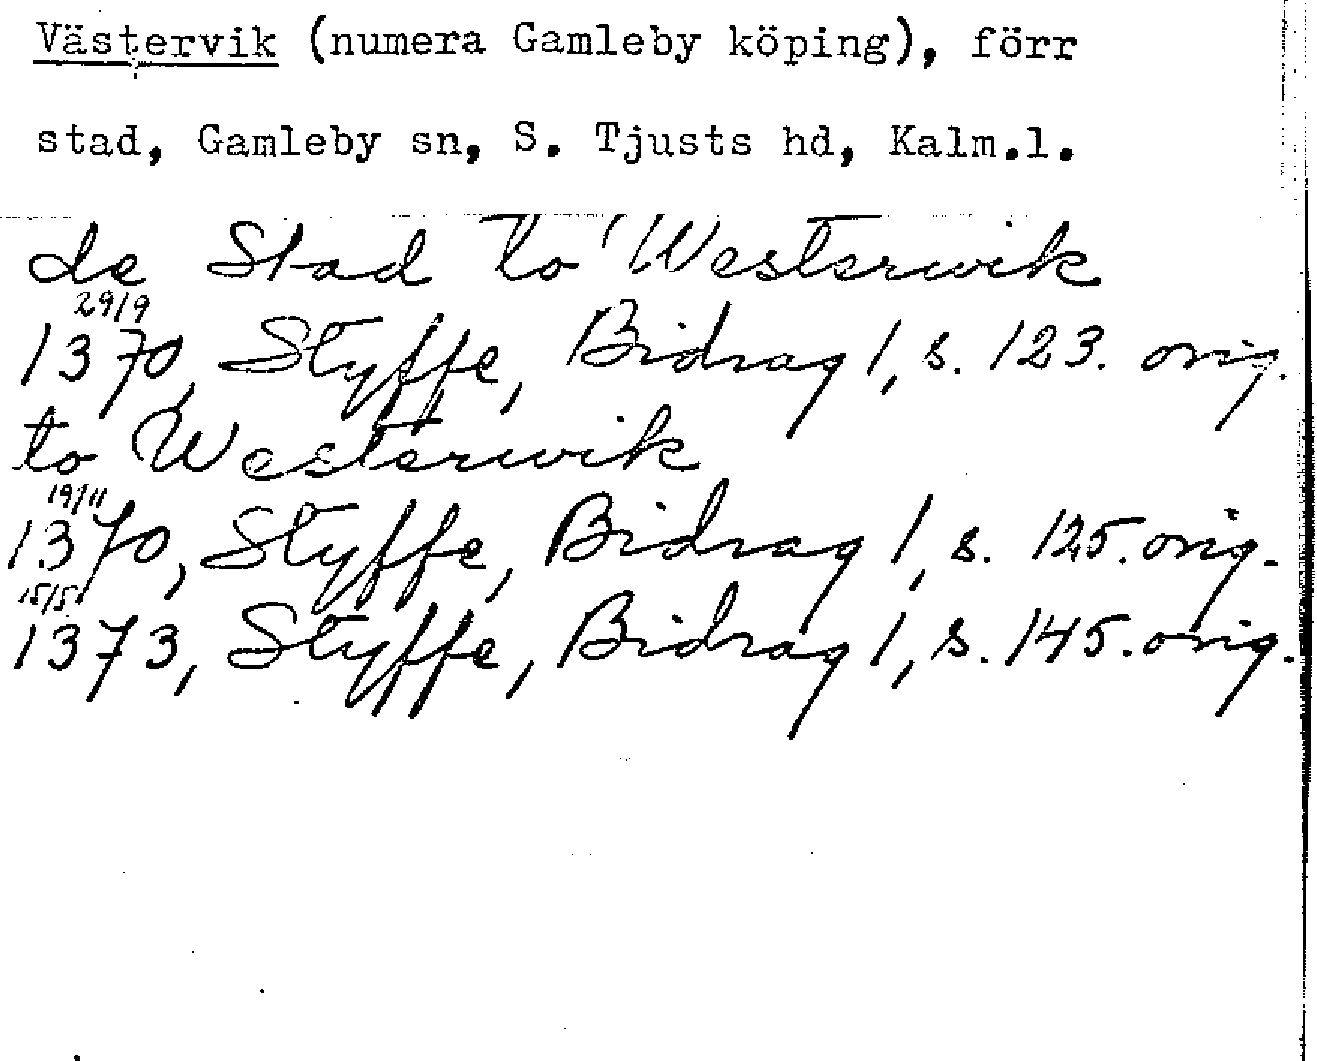 Västervik (numera Gamleby köping), förr
stad, Gamleby sn, S. Tjusts hd, Kalm.l.
de Stad to Westerwik
29/9
1370, Styffe, Bidrag 1, s. 123. orig.
to Westerwik
19/11
1370, Styffe, Bidrag 1, s. 125. orig.
15/5
1373, Styffe, Bidrag 1, s. 145. orig.